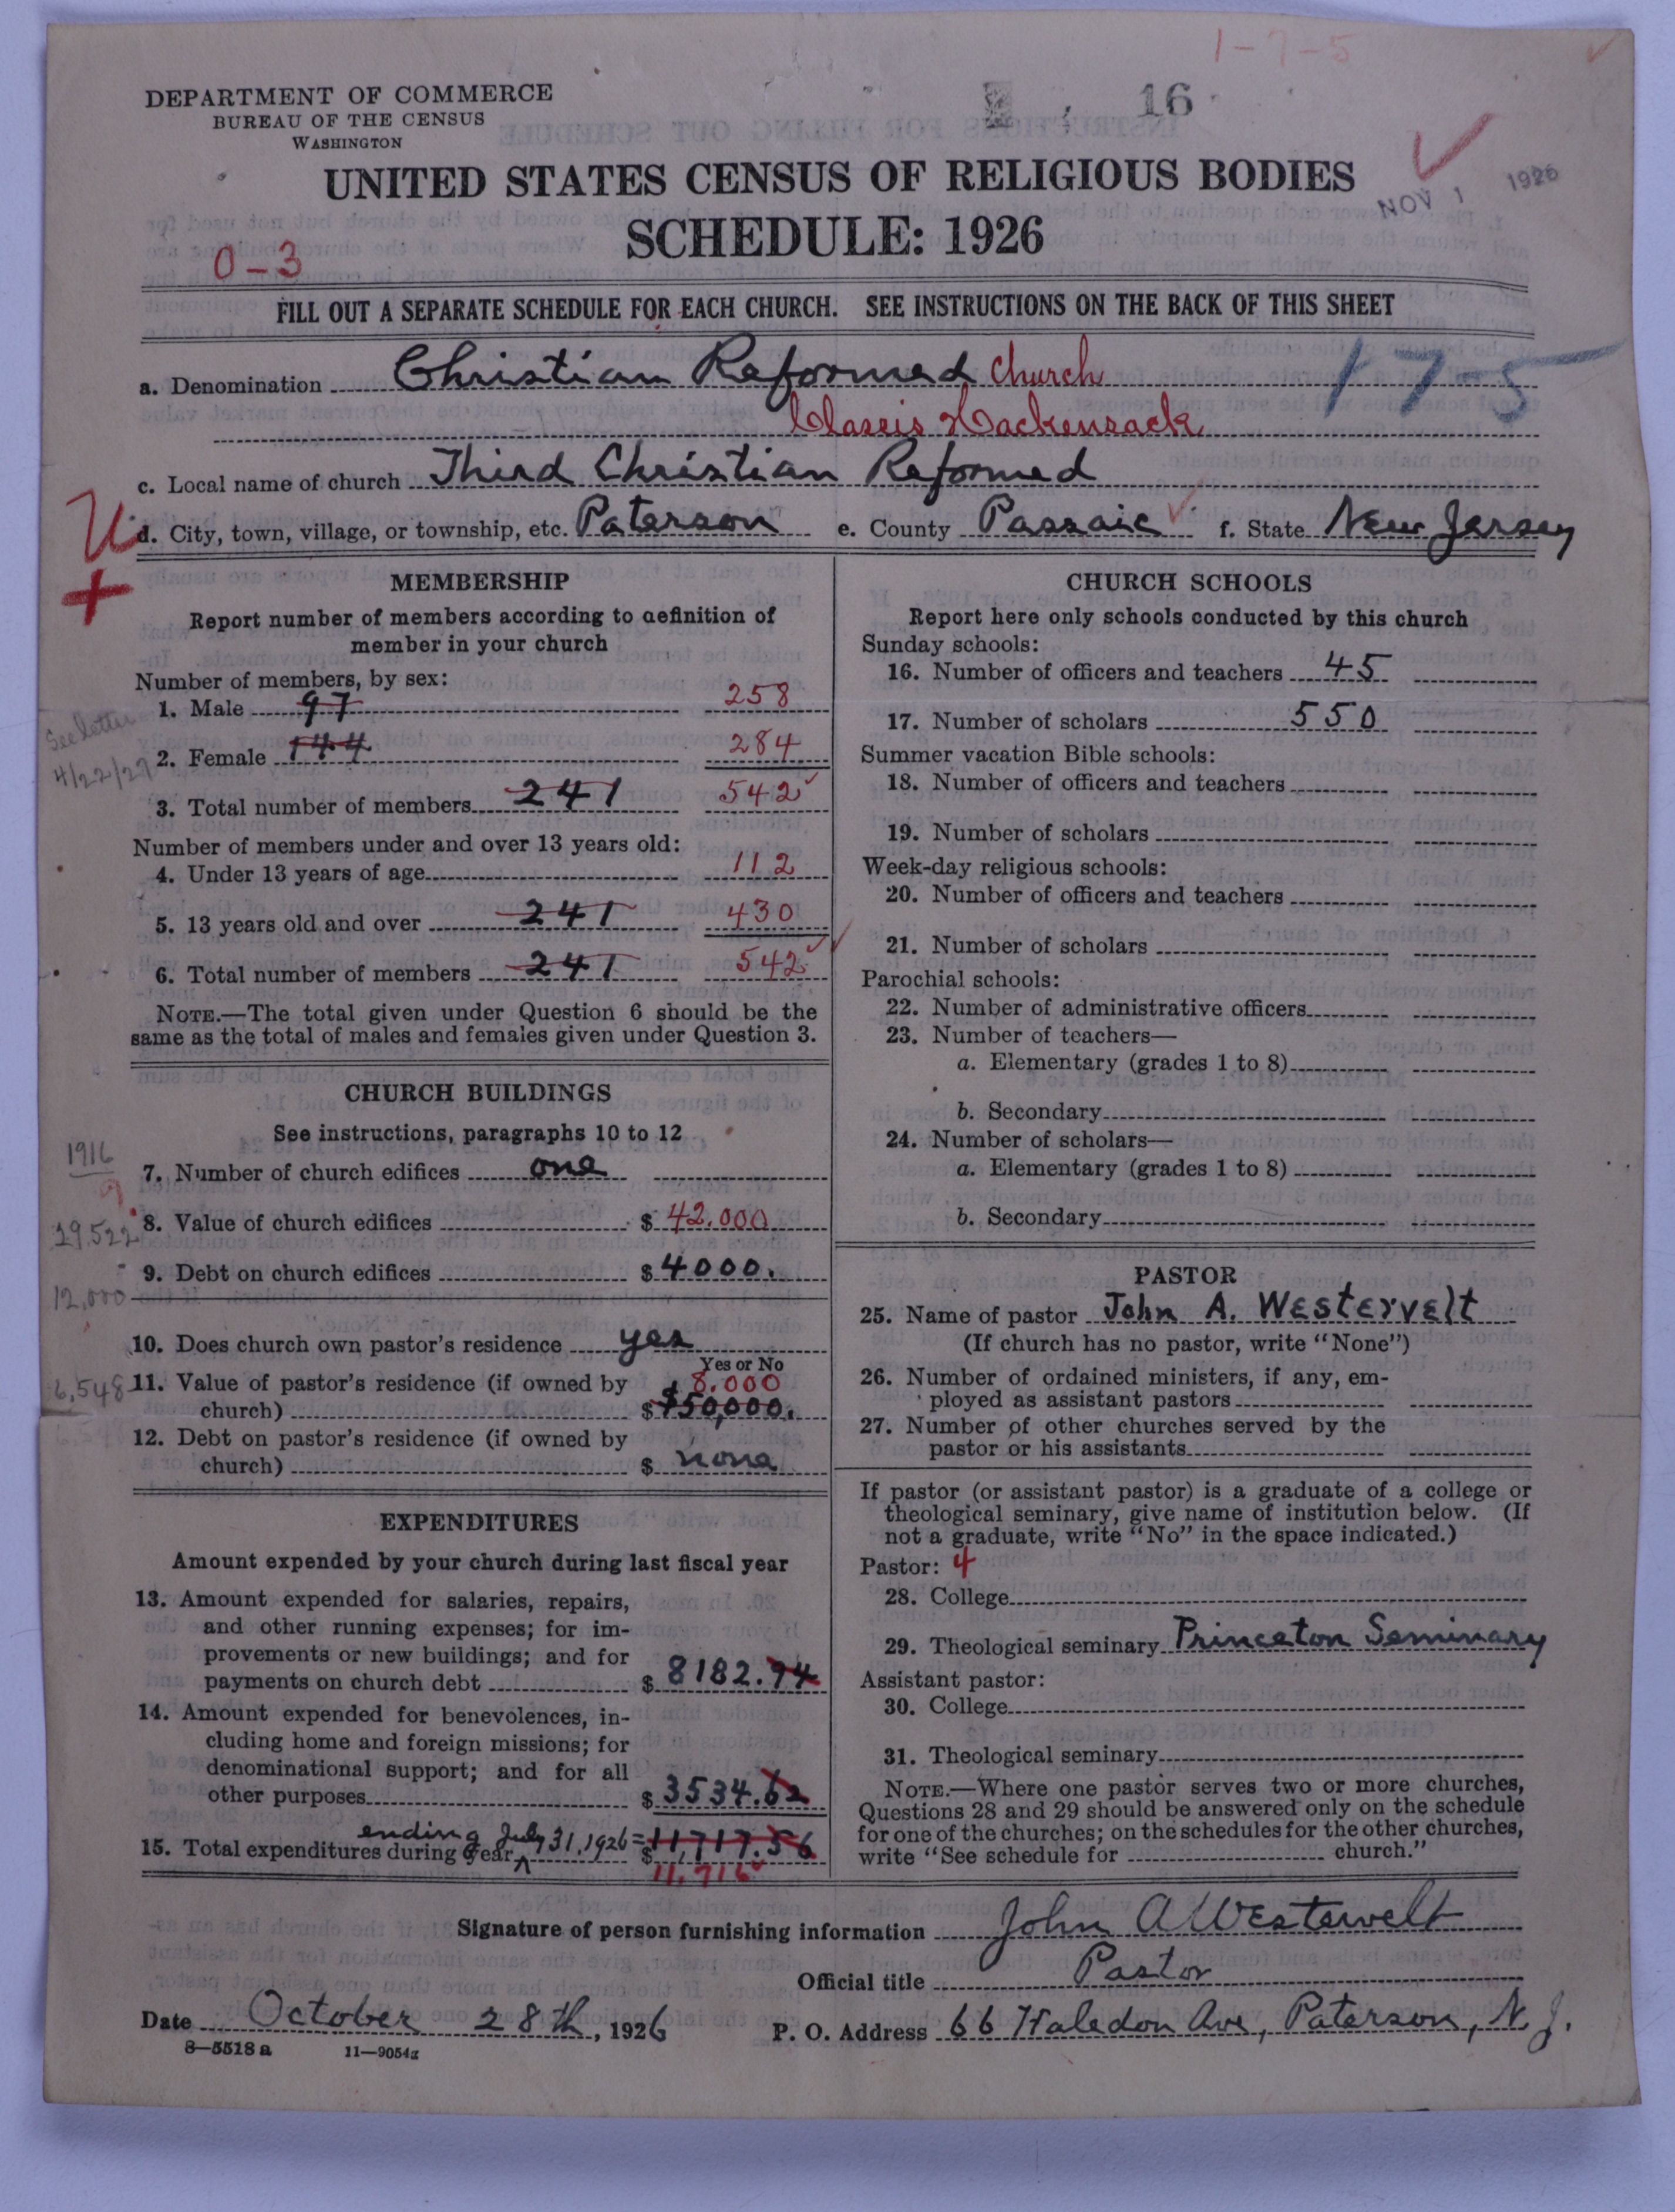 1-7-5
DEPARTMENT OF COMMERCE
BUREAU OF THE CENSUS
WASHINGTON
16
UNITED STATES CENSUS OF RELIGIOUS BODIES
NOV 1 1926
SCHEDULE: 1926
0-3
FILL OUT A SEPARATE SCHEDULE FOR EACH CHURCH. SEE INSTRUCTIONS ON THE BACK OF THIS SHEET
a. Denomination Christian Reformed Church
17-5
Classis Hackensack
c. Local name of church Third Christian Reformed
d. City, town, village, or township, etc. Paterson e. County Passaic f. State New Jersey
MEMBERSHIP
Report number of members according to definition of
member in your church
Number of members, by sex:
1. Male 97 258
See letter
4/22/27
2. Female 144 284
3. Total number of members 241 542
Number of members under and over 13 years old:
4. Under 13 years of age 112
5. 13 years old and over 241 430
6. Total number of members 241 542
NOTE.—The total given under Question 6 should be the
same as the total of males and females given under Question 3.
CHURCH BUILDINGS
See instructions, paragraphs 10 to 12
1916
7. Number of church edifices one
8. Value of church edifices $ 42.000
29,522
9. Debt on church edifices $ 4000.
12,000
10. Does church own pastor's residence yes
Yes or No
11. Value of pastor's residence (if owned by 8.000
6,548
church) $ $50,000.
12. Debt on pastor's residence (if owned by
church) $ none
EXPENDITURES
Amount expended by your church during last fiscal year
13. Amount expended for salaries, repairs,
and other running expenses; for im-
provements or new buildings; and for
payments on church debt $ 8182.94
14. Amount expended for benevolences, in-
cluding home and foreign missions; for
denominational support; and for all
other purposes $ 3534.62
ending July 31, 1926 =
15. Total expenditures during year $ 11,717.56
11,716
CHURCH SCHOOLS
Report here only schools conducted by this church
Sunday schools:
16. Number of officers and teachers 45
17. Number of scholars 550
Summer vacation Bible schools:
18. Number of officers and teachers
19. Number of scholars
Week-day religious schools:
20. Number of officers and teachers
21. Number of scholars
Parochial schools:
22. Number of administrative officers
23. Number of teachers—
a. Elementary (grades 1 to 8)
b. Secondary
24. Number of scholars—
a. Elementary (grades 1 to 8)
b. Secondary
PASTOR
25. Name of pastor John A. Westervelt
(If church has no pastor, write "None")
26. Number of ordained ministers, if any, em-
ployed as assistant pastors
27. Number of other churches served by the
pastor or his assistants
If pastor (or assistant pastor) is a graduate of a college or
theological seminary, give name of institution below. (If
not a graduate, write "No" in the space indicated.)
Pastor: 4
28. College
29. Theological seminary Princeton Seminary
Assistant pastor:
30. College
31. Theological seminary
NOTE.—Where one pastor serves two or more churches,
Questions 28 and 29 should be answered only on the schedule
for one of the churches; on the schedules for the other churches,
write "See schedule for church."
Signature of person furnishing information John A Westervelt
Official title Pastor
Date October 28th, 1926 P. O. Address 66 Haledon Ave, Paterson, N. J.
8—5518 a 11—9054a